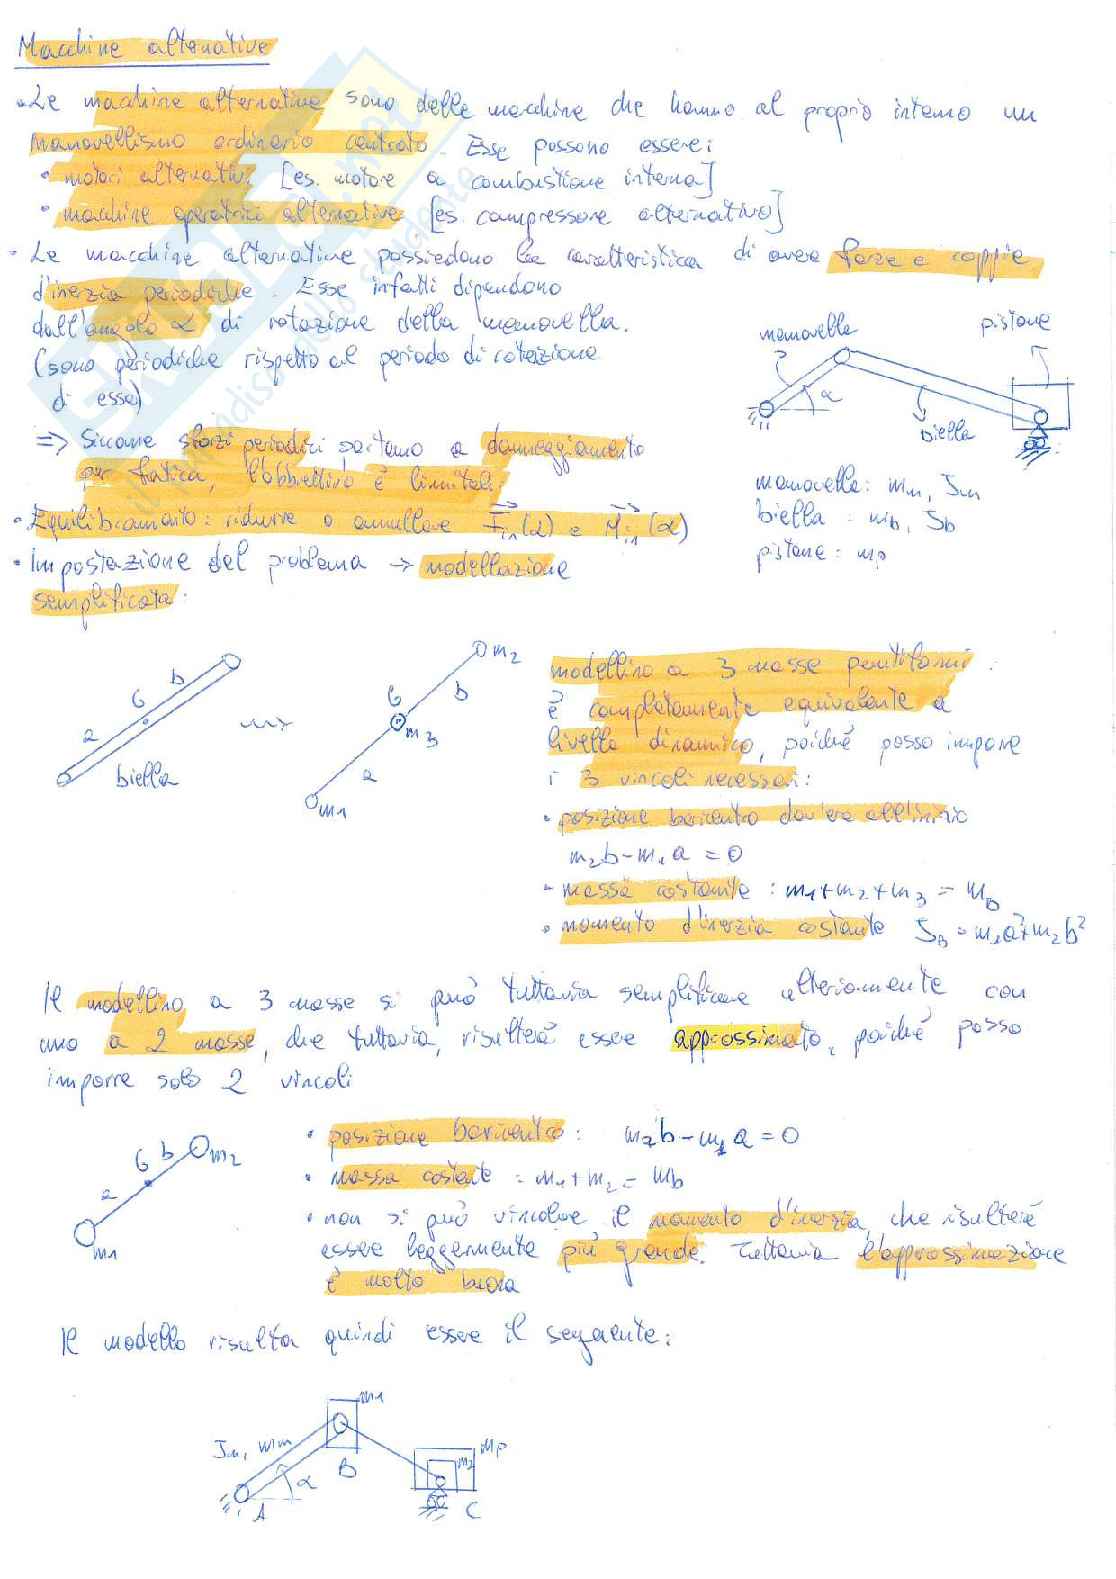 Macchine alternative
• Le macchine alternative sono delle macchine che hanno al proprio interno un
manovellismo ordinario centrato. Esse possono essere:
• motori alternativi [es. motore a combustione interna]
• macchine operatrici alternative [es. compressore alternativo]
• Le macchine alternative possiedono la caratteristica di avere forze e coppie
d'inerzia periodiche. Esse infatti dipendono
dall'angolo α di rotazione della manovella.
(sono periodiche rispetto al periodo di rotazione
di essa)
manovella
pistone
α
biella
=> Siccome sforzi periodici portano a danneggiamento
per fatica, l'obbiettivo è limitarli
manovella: mm, Jm
biella: mb, Jb
pistone: mp
• Equilibramento: ridurre o annullare Fin(α) e Min(α)
• Impostazione del problema → modellazione
semplificata:
a G b
biella
m2
G b
m3
a
m1
modellino a 3 masse puntiformi:
è completamente equivalente a
livello dinamico, poiché posso imporre
i 3 vincoli necessari:
• posizione baricentro dov'era all'inizio
m2b-m1a = 0
• massa costante: m1+m2+m3 = mb
• momento d'inerzia costante Jb = m1a²+m2b²
Il modellino a 3 masse si può tuttavia semplificare ulteriormente con
uno a 2 masse, che tuttavia, risulterà essere approssimato, poiché posso
imporre solo 2 vincoli
a G b m2
m1
• posizione baricentro: m2b-m1a=0
• massa costante: m1+m2= mb
• non si può vincolare il momento d'inerzia, che risulterà
essere leggermente più grande. Tuttavia l'approssimazione
è molto buona
Il modello risulta quindi essere il seguente:
m1
Jm, mm
mp
m2
B
α
A
C